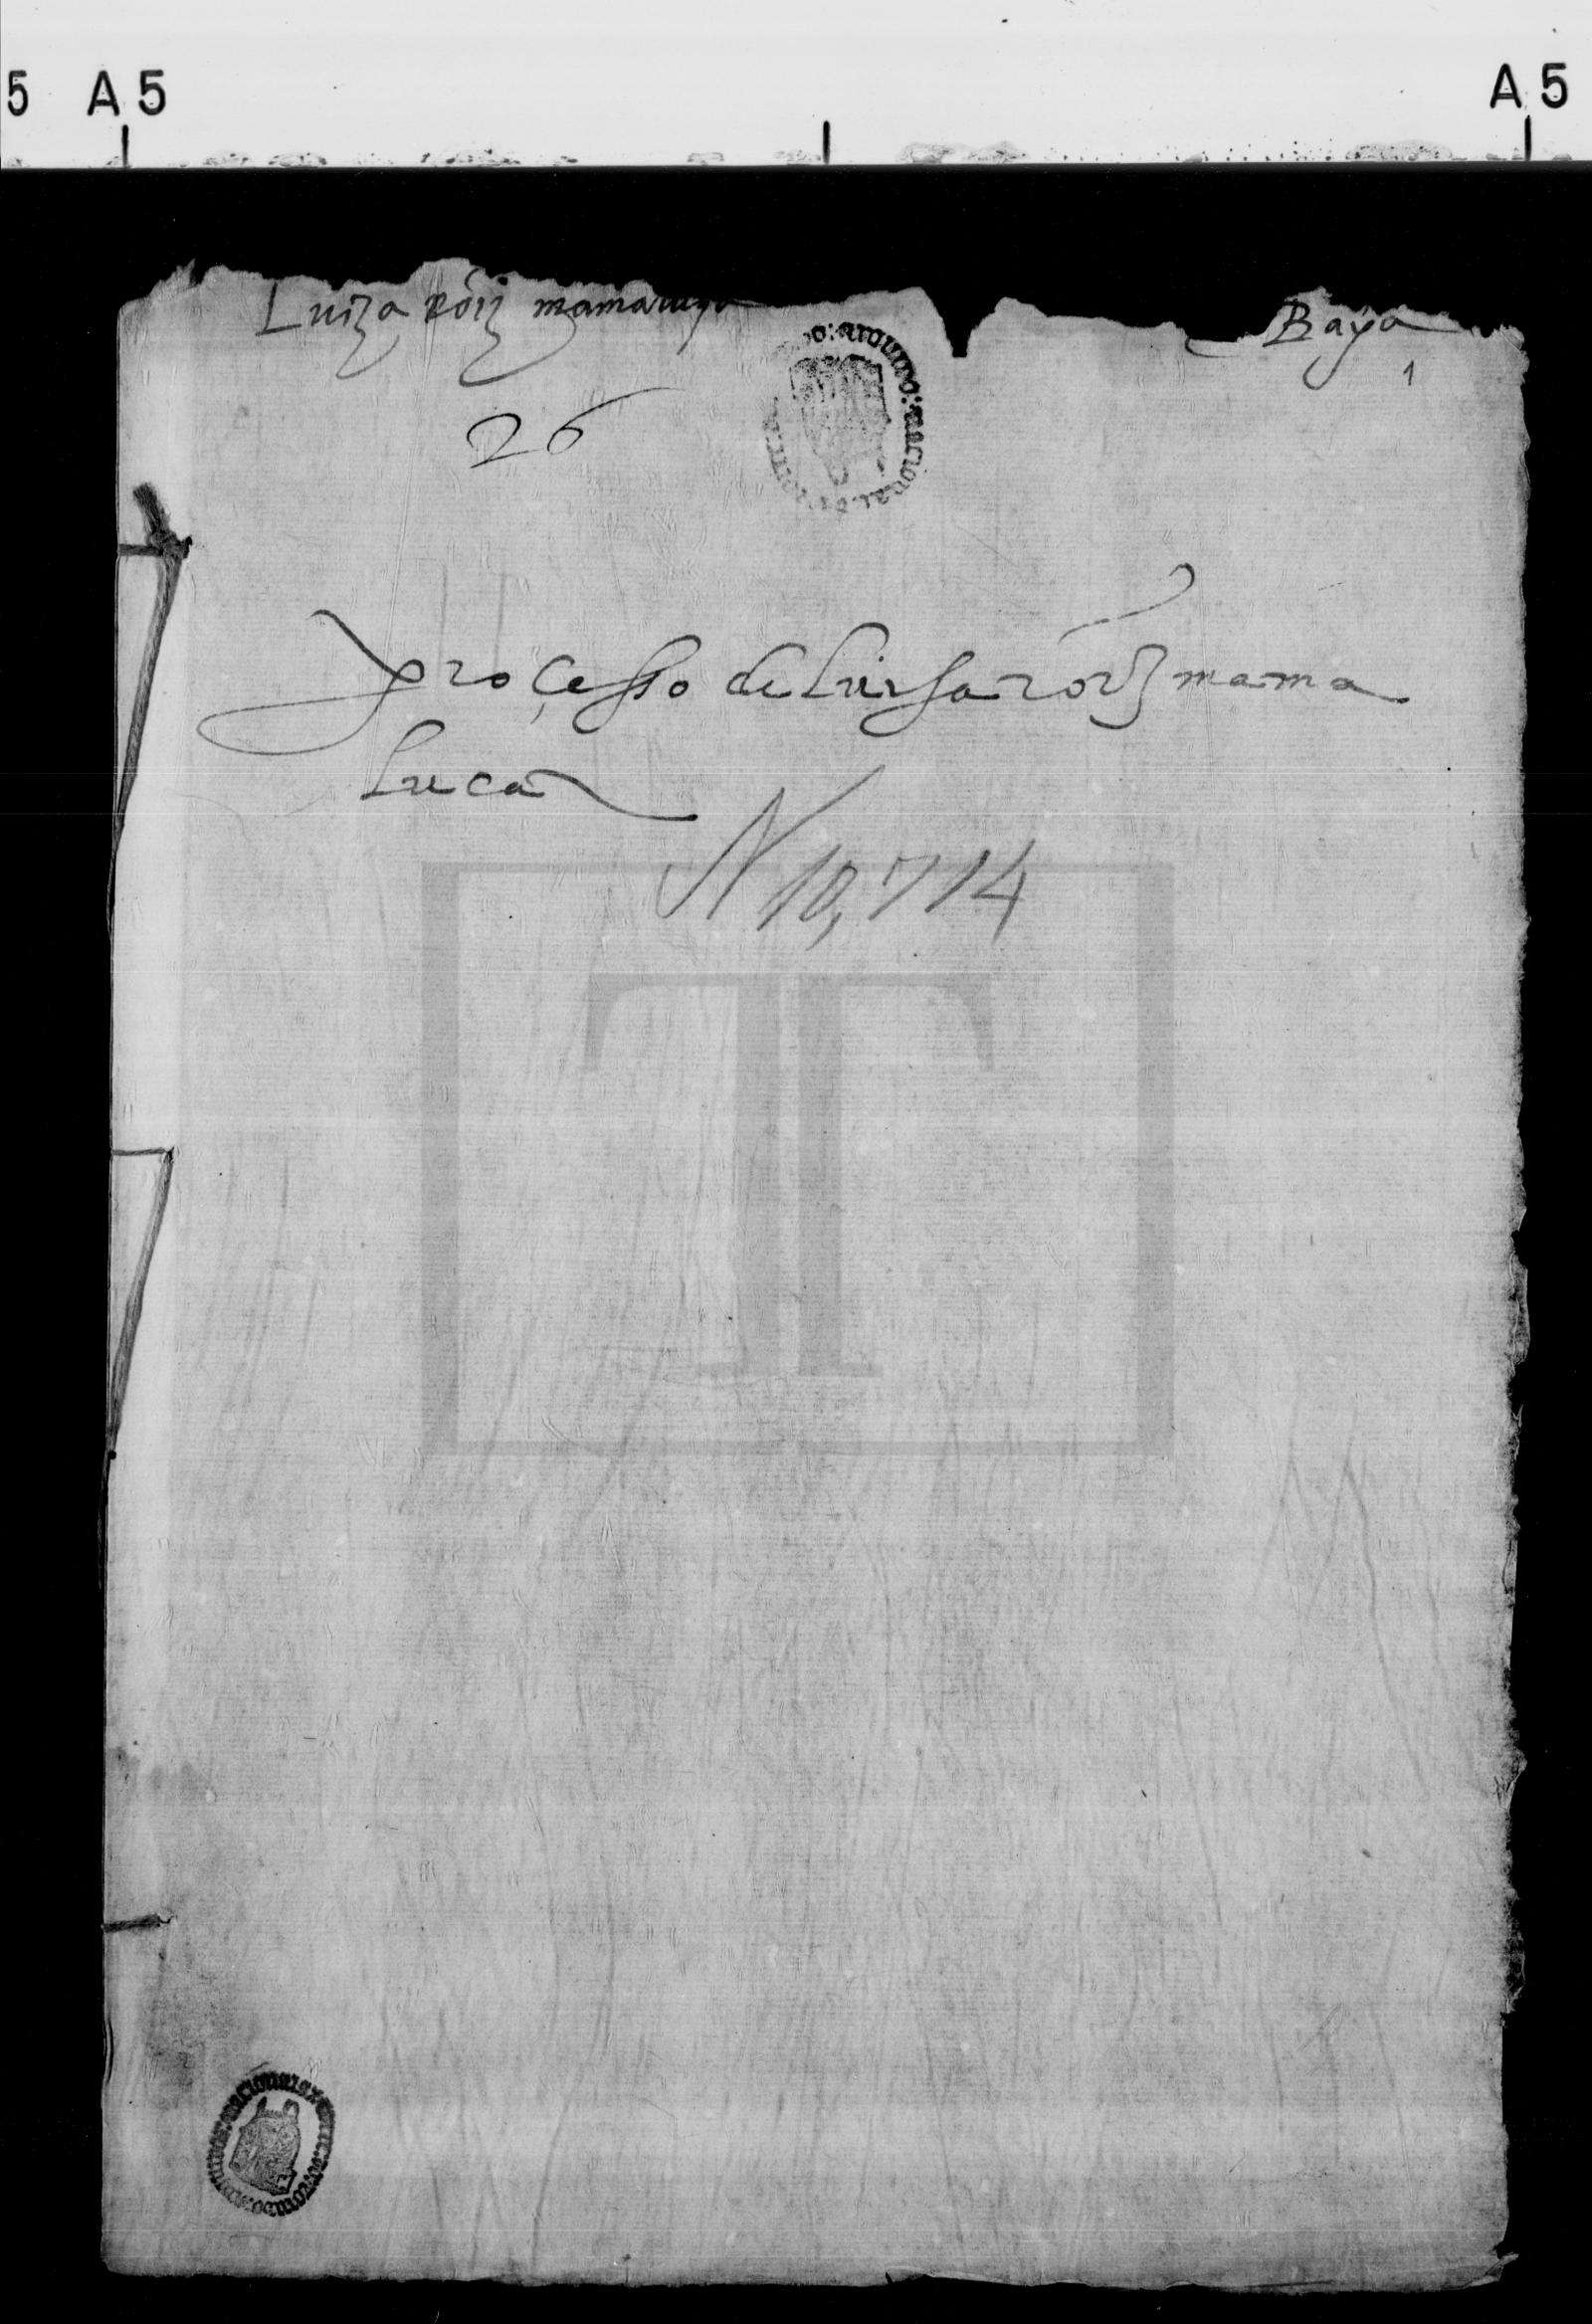 5 A5 A5
Luiza roiz mamaluqa Baya
1
26
proçesso de Luisa roiz mama
luca
N 10,714
TT